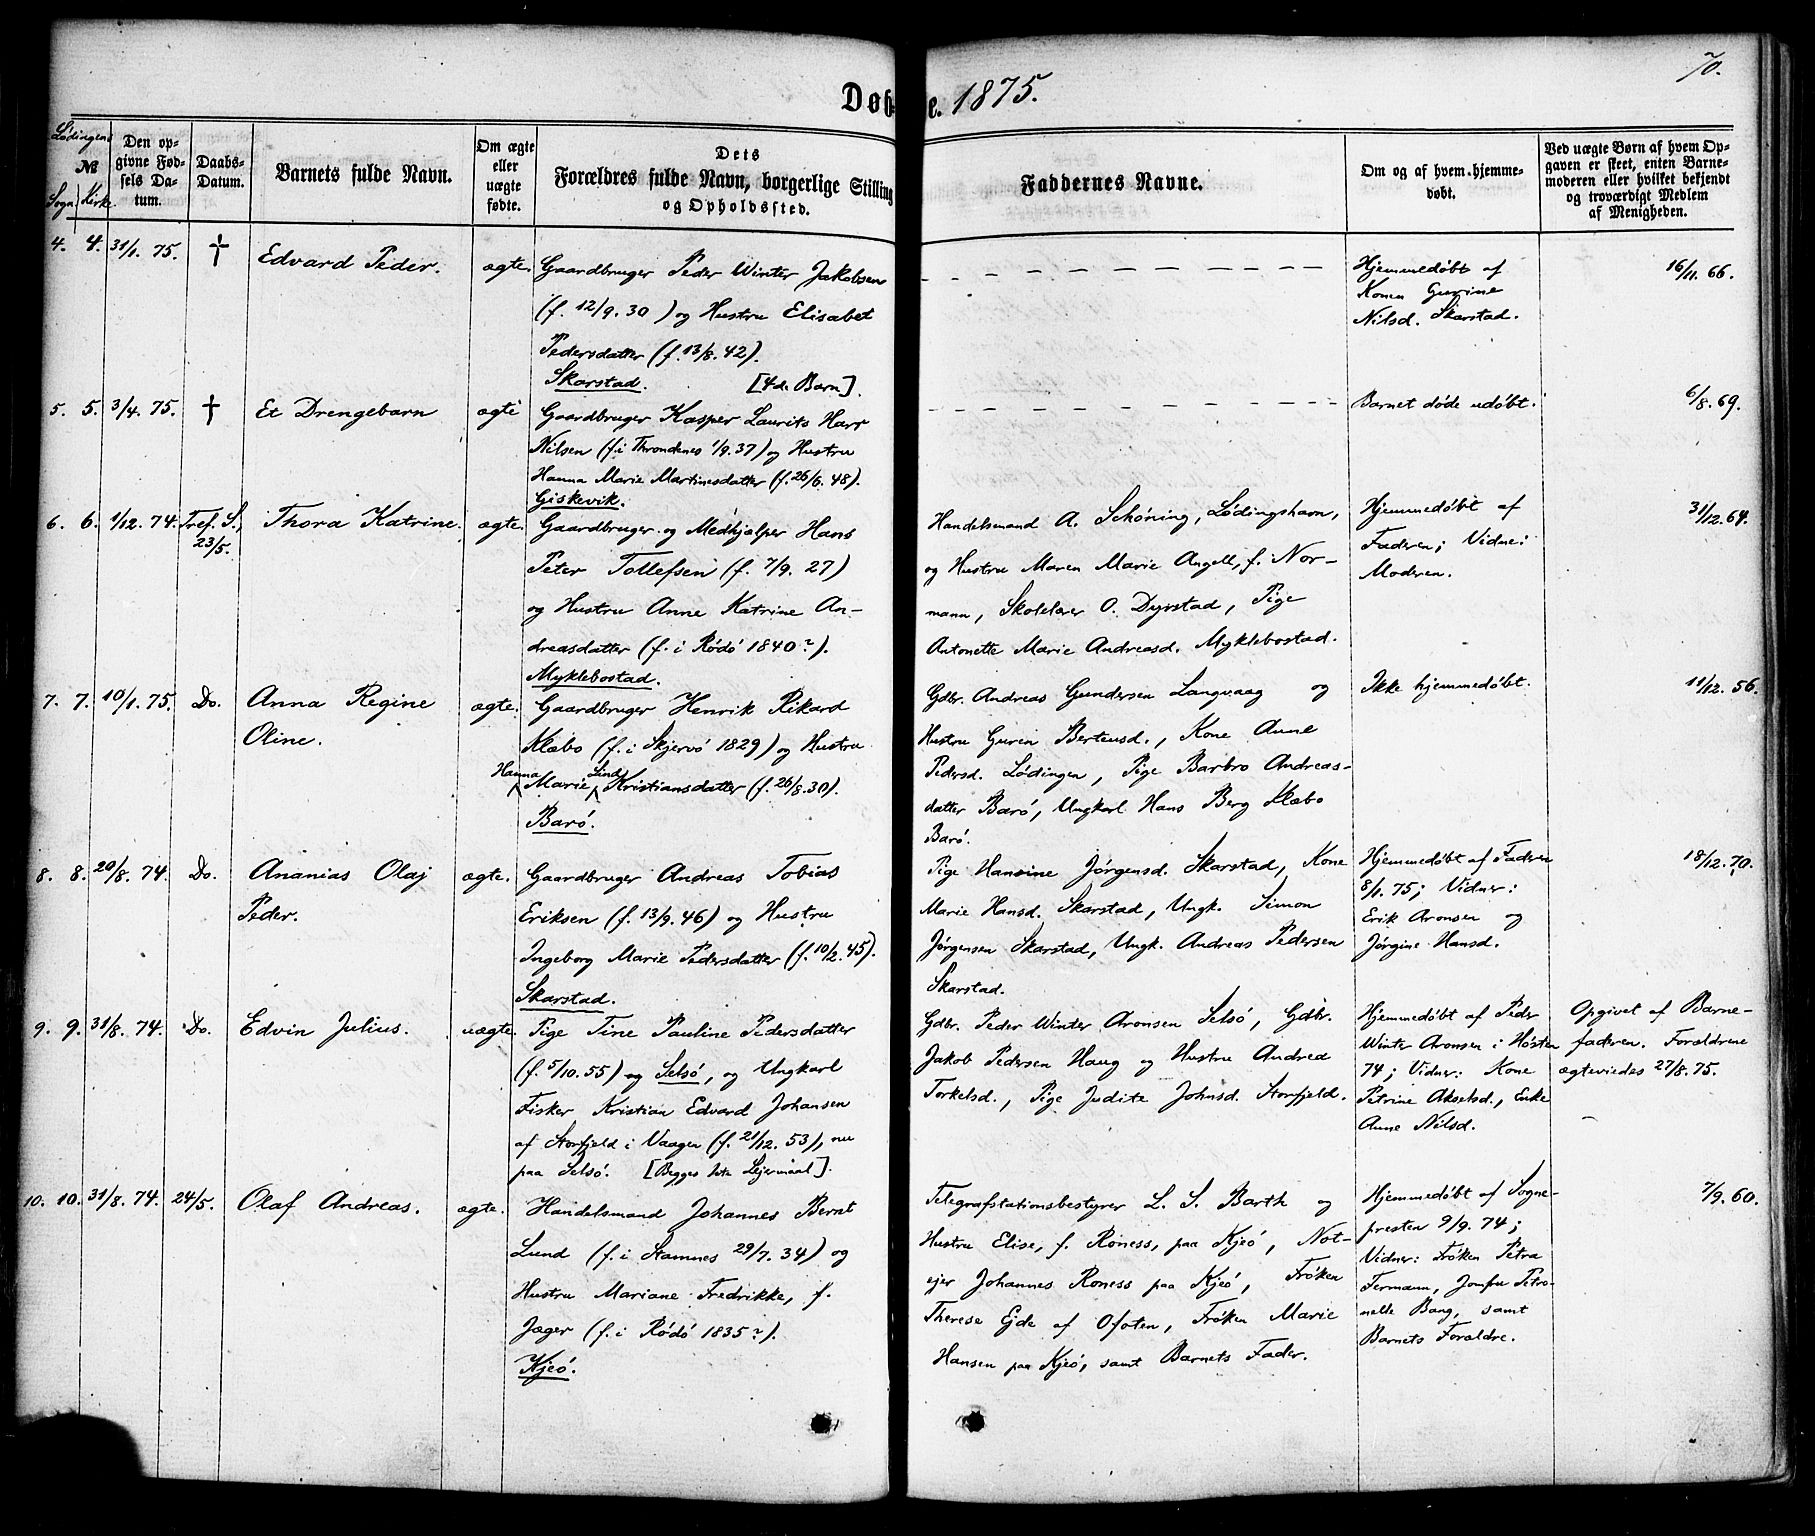 70.
Døbte. 1875.
Lødingens
№
Sogn Kirke
Den op-
givne Fød-
sels Da-
tum.
Daabs-
Datum.
Barnets fulde Navn.
Om ægte
eller
uægte
fødte.
Dets
Forældres fulde Navn, borgerlige Stilling
og Opholdssted.
Faddernes Navne.
Om og af hvem hjemme-
døbt.
Ved uægte Børn af hvem Op-
gaven er skeet, enten Barne-
moderen eller hvilket bekjendt
og troværdigt Medlem
af Menigheden.
4. 4. 31/1. 75. † Edvard Peder. ægte.
Gaardbruger Peder Winter Jakobsen
(f. 12/9. 30) og Hustru Elisabet
Pedersdatter (f. 13/8. 42).
Skarstad. [4de Barn].
Hjemmedøbt af
Konen Gurine
Nilsd. Skarstad.
16/11. 66.
5. 5. 3/4. 75. † Et Drengebarn ægte
Gaardbruger Kasper Laurits Harr
Nilsen (f. i Throndenes 1/9. 37) og Hustru
Hanna Marie Martinesdatter (f. 26/6. 48).
Giskevik.
Barnet døde udøbt.
6/8. 69.
6. 6. 1/12. 74. Tref. S. Thora Katrine. ægte.
23/5.
Gaardbruger og Medhjælper Hans
Peter Tollefsen (f. 7/9. 27)
og Hustru Anne Katrine An-
dreasdatter (f. i Rødø 1840?).
Myklebostad.
Handelsmand A. Schöning, Lødingshavn,
og Hustru Maren Marie Angell, f. Nor-
mann, Skolelærer O. Dyrstad, Pige
Antonette Marie Andreasd. Myklebostad.
Hjemmedøbt af
Faderen; Vidne:
Moderen.
31/12. 64.
7. 7. 10/1. 75. Do. Anna Regine
Oline. ægte.
Gaardbruger Henrik Rikard
Klæbo (f. i Skjervø 1829) og Hustru
Hanna Marie Lind Kristiansdatter (f. 26/8. 30).
Barø.
Gdbr. Andreas Gundersen Langvaag og
Hustru Guren Bertensd., Kone Anne
Pedersd. Lødingen, Pige Barbro Andreas-
datter Barø, Ungkarl Hans Berg Klæbo
Barø.
Ikke hjemmedøbt.
11/12. 56.
8. 8. 20/8. 74. Do. Ananias Olaj
Peder. ægte.
Gaardbruger Andreas Tobias
Eriksen (f. 13/9. 46) og Hustru
Ingeborg Marie Pedersdatter (f. 10/2. 45).
Skarstad.
Pige Hansine Jørgensd. Skarstad, Kone
Marie Hansd. Skarstad, Ungk. Simon
Jørgensen Skarstad, Ungk. Andreas Pedersen
Skarstad.
Hjemmedøbt af Faderen
8/1. 75; Vidner:
Erik Aronsen og
Jørgine Hansd.
18/12. 70.
9. 9. 31/8. 74. Do. Edvin Julius. uægte.
Pige Tine Pauline Pedersdatter
(f. 5/10. 55) og Selsø, og Ungkarl
Fisker Kristian Edvard Johansen
af Storfjeld i Vaagen (f. 21/12. 53), nu
paa Selsø. [Begges 1ste Lejermaal].
Gdbr. Peder Winter Aronsen Selsø, Gdbr.
Jakob Pedersen Haug og Hustru Andrea
Torkelsd., Pige Judite Johnsd. Storfjeld.
Hjemmedøbt af Peder
Winter Aronsen i Høsten
74; Vidner: Kone
Petrine Akselsd., Enke
Anne Nilsd.
Opgivet af Barne-
faderen. Forældrene
ægteviedes 27/8. 75.
10. 10. 31/8. 74. 24/5. Olaf Andreas. ægte.
Handelsmand Johannes Bernt
Lund (f. i Stamnes 29/7. 34) og
Hustru Mariane Fredrikke, f.
Jæger (f. i Rødø 1835?).
Kjeø.
Telegrafstationsbestyrer L. S. Barth og
Hustru Elise, f. Røness, paa Kjeø, Not-
ejer Johannes Røness paa Kjeø, Frøken
Therese Ejde af Ofoten, Frøken Marie
Hansen paa Kjeø, samt Barnets Fader.
Hjemmedøbt af Sogne-
presten 9/9. 74;
Vidner: Frøken Petra
Termann, Jomfru Petro-
nelle Bang, samt
Barnets Forældre.
7/9. 60.